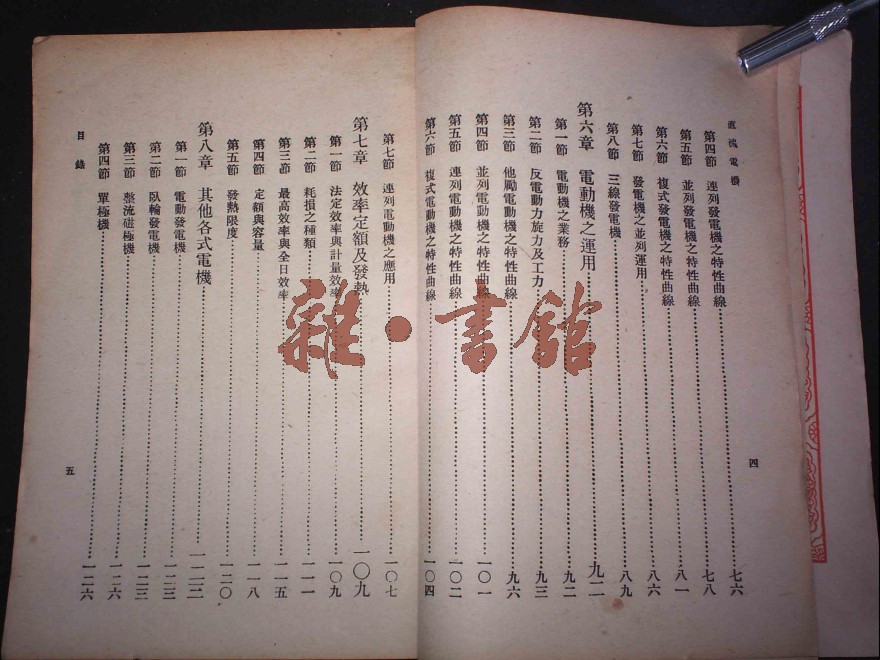 直流電機
第四節 連列發電機之特性曲線……七六
第五節 並列發電機之特性曲線……七八
第六節 複式發電機之特性曲線……八一
第七節 發電機之並列運用……八六
第八節 三線發電機……八九
第六章 電動機之運用……九二
第一節 電動機之業務……九二
第二節 反電動力旋力及工力……九三
第三節 他勵電動機之特性曲線……九六
第四節 並列電動機之特性曲線……一〇一
第五節 連列電動機之特性曲線……一〇二
第六節 複式電動機之特性曲線……一〇四
四
第七節 連列電動機之應用……一〇七
第七章 效率定額及發熱……一〇九
第一節 法定效率與計量效率……一〇九
第二節 耗損之種類……一一一
第三節 最高效率與全日效率……一一五
第四節 定額與容量……一一八
第五節 發熱限度……一二〇
第八章 其他各式電機……一二三
第一節 電動發電機……一二三
第二節 臥輪發電機……一二三
第三節 整流磁極機……一二六
第四節 單極機……一二六
目錄
五
雜·書館